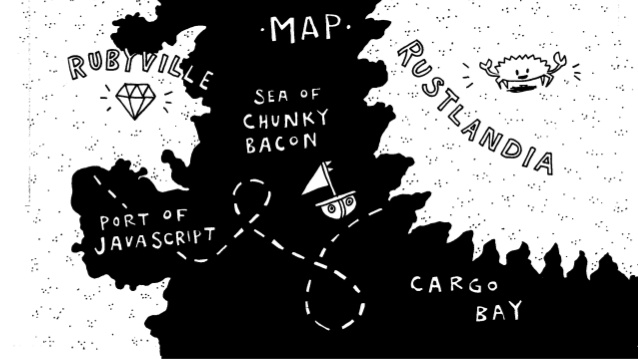 ·MAP·
RUBYVILLE
RUSTLANDIA
SEA OF
CHUNKY
BACON
PORT OF
JAVASCRIPT
CARGO
BAY